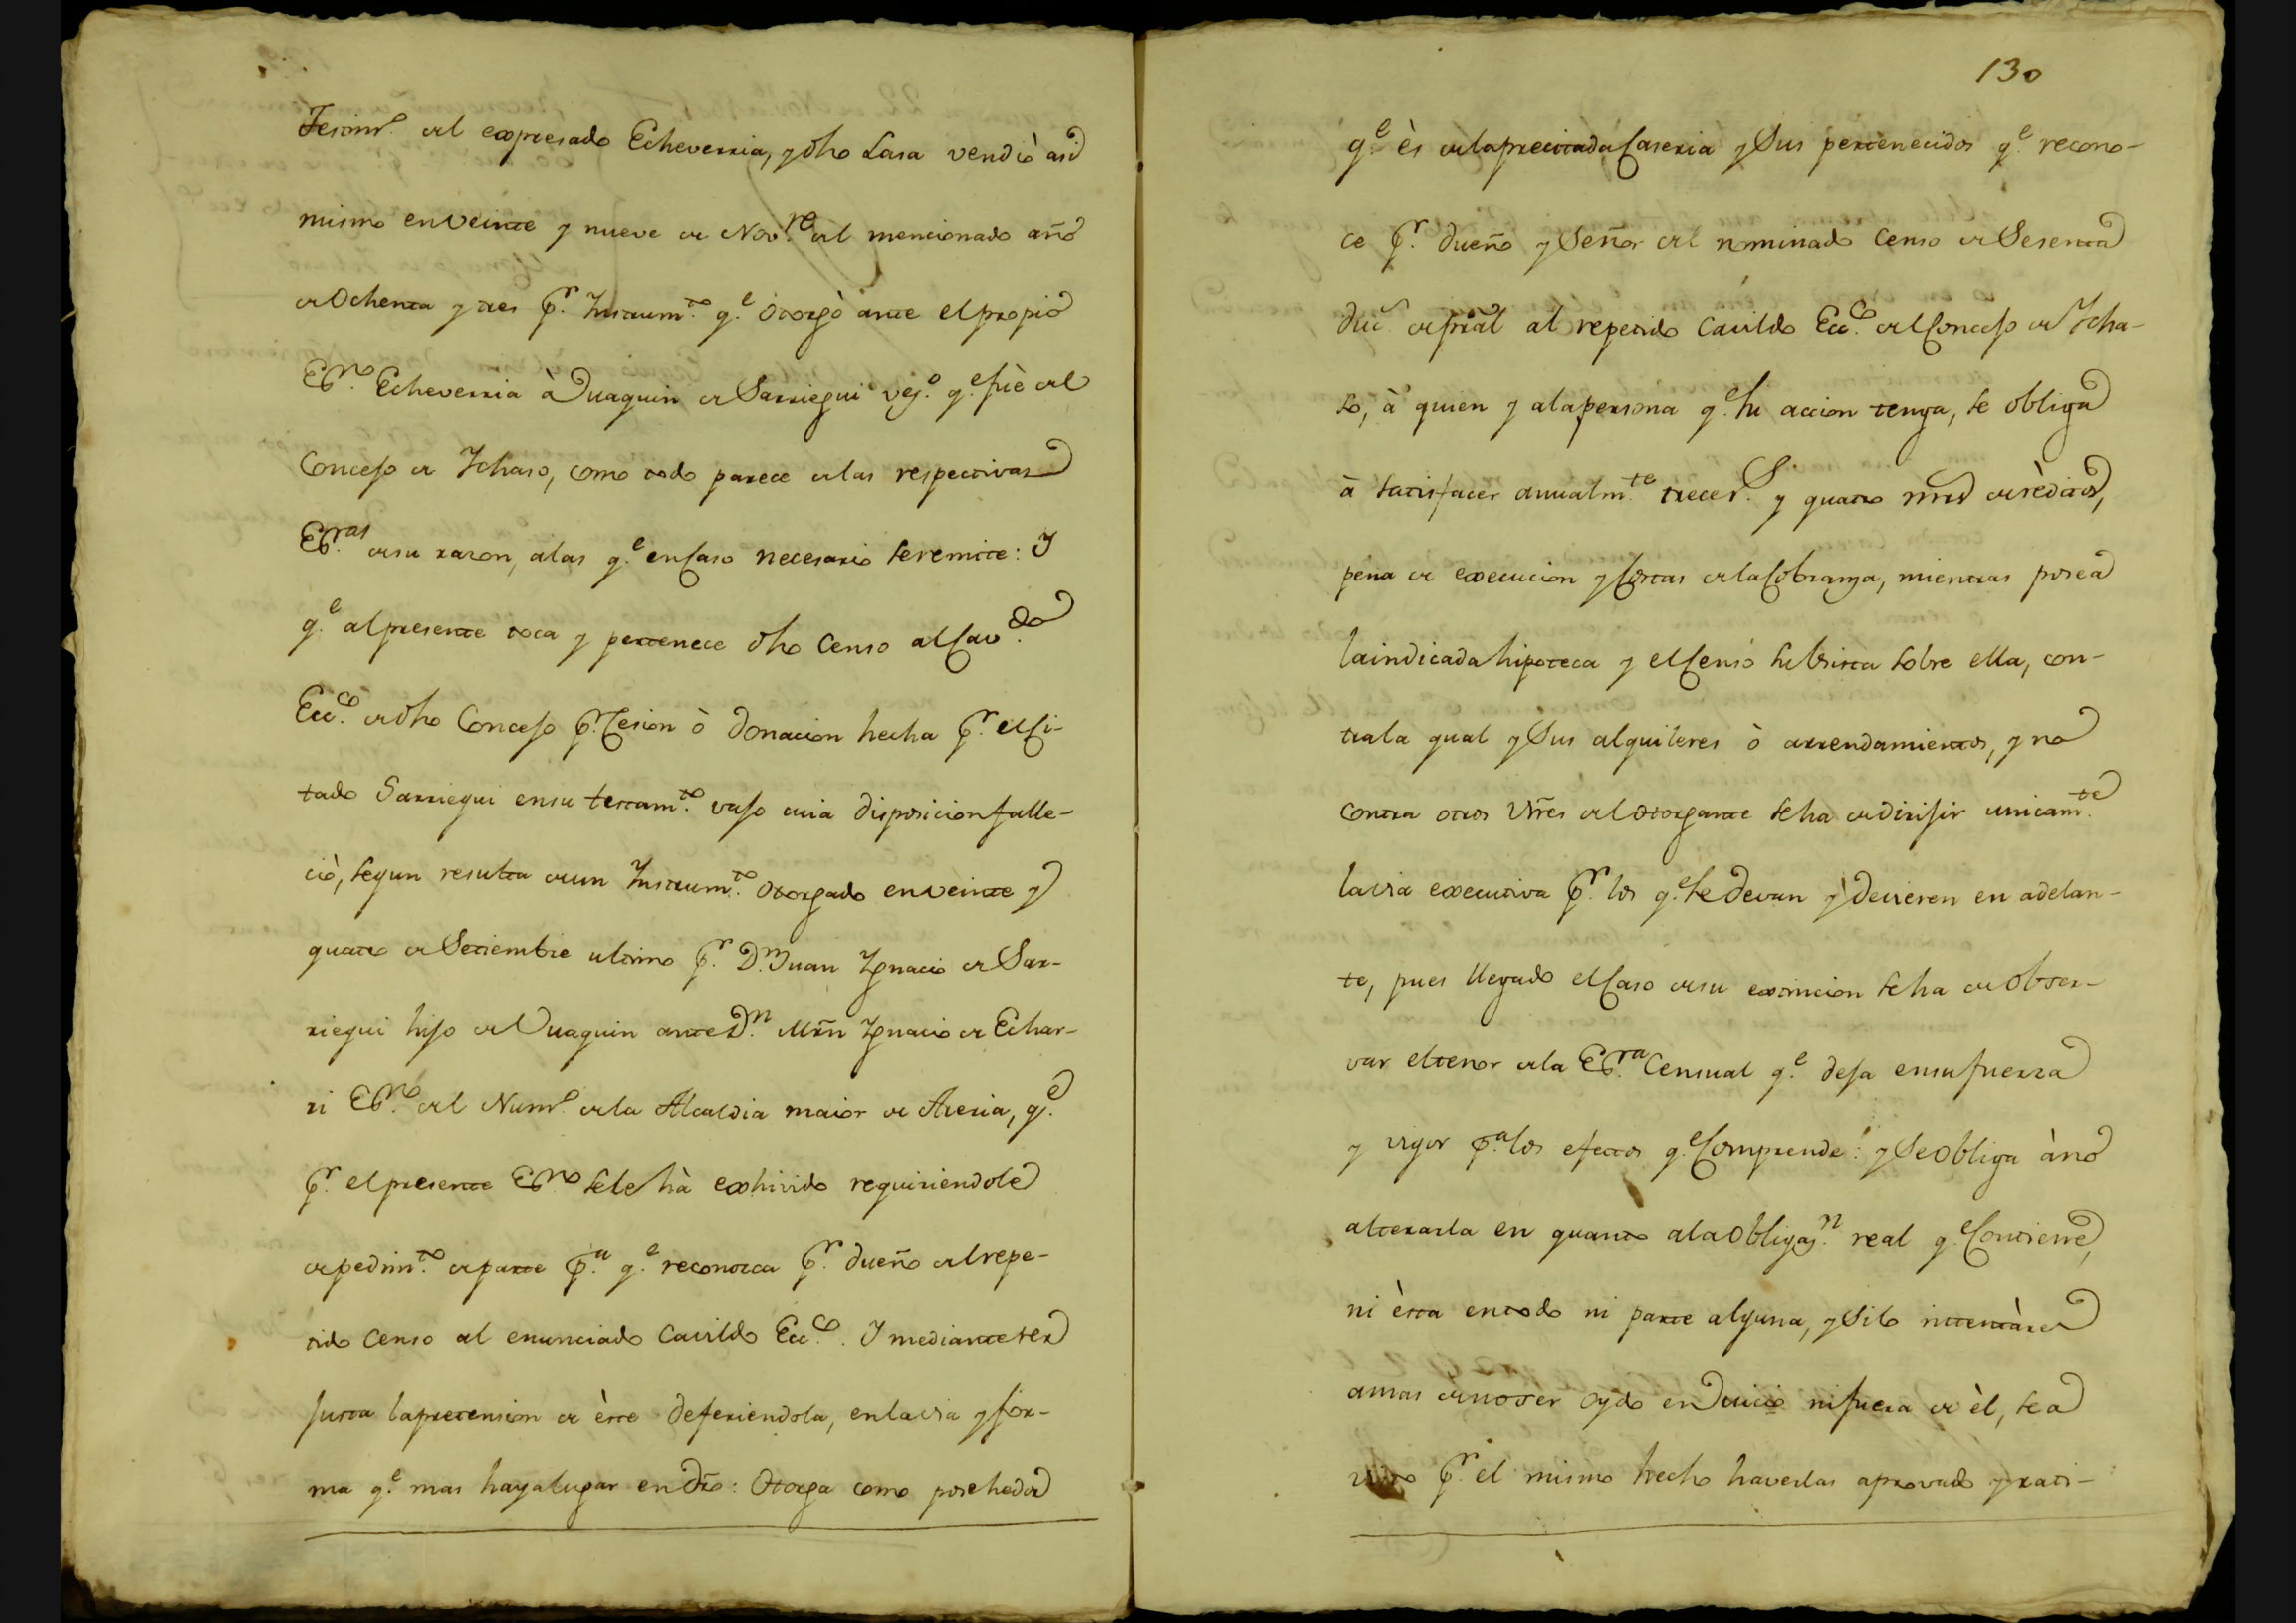 Testimº. del expresado Echeverria, y dho Lasa vendiò asi
mismo en veinte y nueve de Novre. del mencionado año
de Ochenta y tres pr. Instrumto. qe. otorgò ante el propio
Esno. Echeverria à Juaquin de Sarriegui vezº. qe. fuè del
Concejo de Ychaso, como todo parece de las respectivas
Esras. de su razon, a las qe. en Caso necesario se remite: Y
qe. al presente toca y pertenece dho Censo al Cavdo.
Ecco. de dho Concejo pr. Cesion ò donacion hecha pr. el Ci-
tado Sarriegui en su testamto. vajo cuia disposicion falle-
ciò, segun resulta de un Instrumto. otorgado en veinte y
quatro de Setiembre ultimo pr. Dn. Juan Ygnacio de Sar-
riegui hijo de Juaquin ante Dn. Mrn Ygnacio de Echar-
ri Esno. del Numº. de la Alcaldia maior de Areria, qe.
pr. el presente Esno. se le hà exhivido requiriendole
de pedimto. de parte pa. qe. reconozca pr. dueño del repe-
tido Censo al enunciado Cavildo Ecco. Y mediante ser
justa la pretension de èste deferiendola, en la via y for-
ma qe. mas haya lugar en dro: Otorga como posehedor
130
qe. ès de la precitada Caseria y Sus pertenecidos qe. recono-
ce pr. dueño y Señor del nominado Censo de Sesenta
duc. de pral al repetido Cavildo Ecco. del Concejo de Ycha-
so, à quien y a la persona qe. su accion tenga, se obliga
à satisfacer anualmte. trece rs. y quatro mrs de rèditos,
pena de execucion y Costas de la Cobranza, mientras posea
la indicada hipoteca y el Censo subsista sobre ella, con-
tra la qual y Sus alquileres ò arrendamientos, y no
contra otros vnes del otorgante se ha de dirijir unicamte.
la via executiva pr. los qe. se devan y devieren en adelan-
te, pues llegado el Caso de su extincion se ha de obser-
var el tenor de la Esra. Censual qe. deja en su fuerza
y vigor pa. los efectos qe. Comprende: y Se obliga à no
alterarla en quanto a la obligazn. real qe. Contiene,
ni èsta en todo ni parte alguna, y Si lo intentàre
a mas de no ser oydo en Juicio ni fuera de èl, sea
visto pr. el mismo hecho haverlas aprovado y rati-